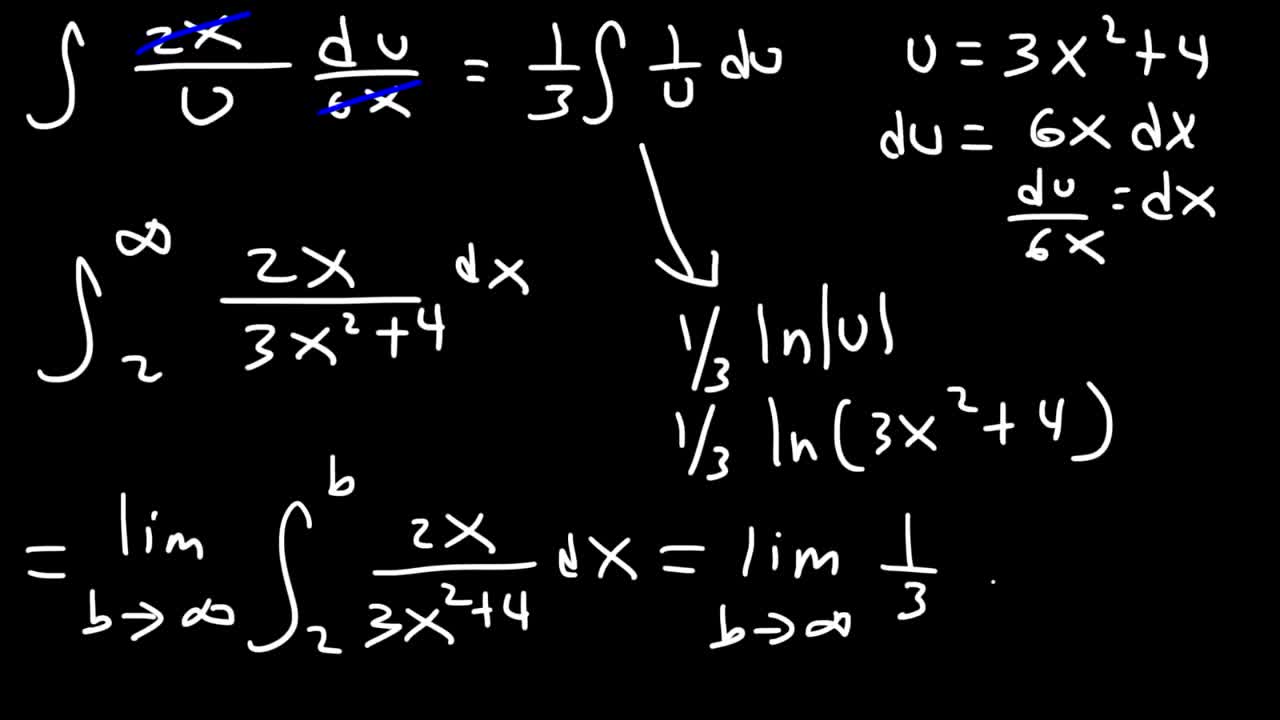 ∫ 2x/u du/6x = 1/3 ∫ 1/u du
u = 3x² + 4
du = 6x dx
du/6x = dx
∫₂^∞ 2x/(3x²+4) dx
1/3 ln|u|
1/3 ln(3x² + 4)
= lim b→∞ ∫₂^b 2x/(3x²+4) dx = lim b→∞ 1/3